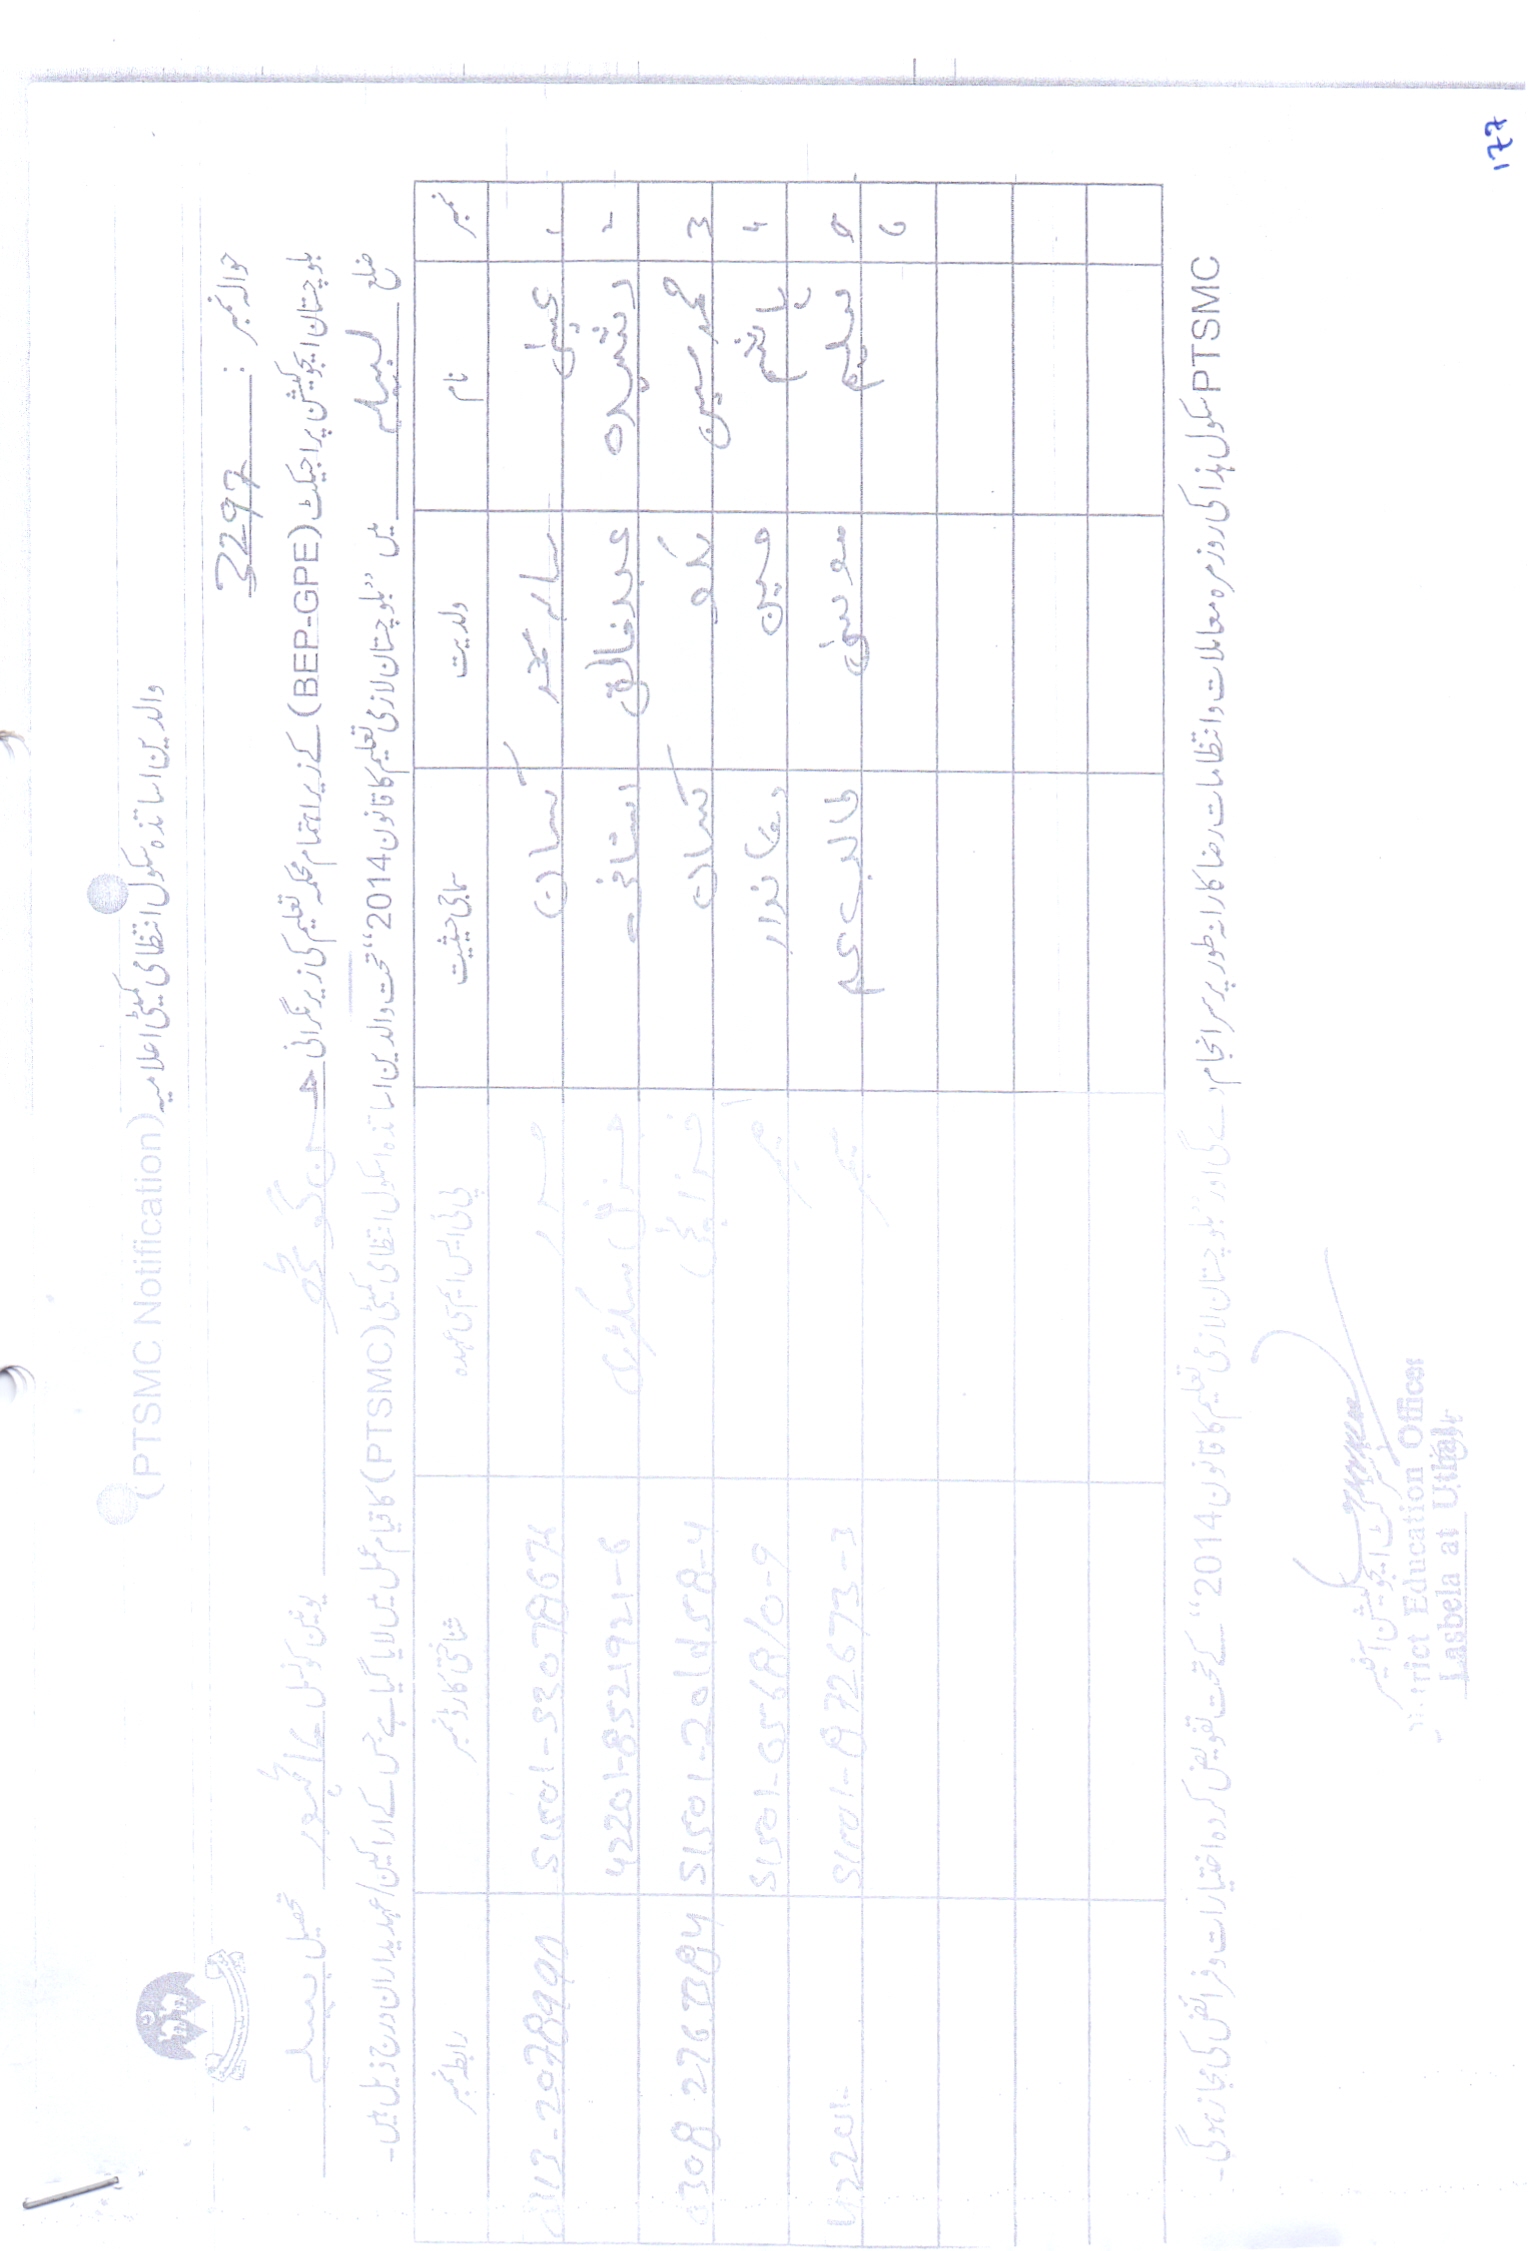 177
والدین اساتذہ سکول انتظامی کمیٹی اعلامیہ (PTSMC Notification)
حوالہ نمبر : 3297
بلوچستان ایجوکیشن پراجیکٹ (BEP-GPE) کے زیر اہتمام محکمہ تعلیم کی زیر نگرانی حسن گوٹھ یونین کونسل تحصیل بیلہ
ضلع لسبیلہ میں "بلوچستان لازمی تعلیم کا قانون 2014" تحت والدین اساتذہ اسکول انتظامی کمیٹی (PTSMC) کا قیام عمل میں لایا گیا ہے جس کے اراکین/عہدیداران درج ذیل ہیں۔
نمبر نام ولدیت سماجی حیثیت پی ٹی ایس ایم سی عہدہ شناختی کارڈ نمبر رابطہ نمبر
1 عیسیٰ محمد کسان صدر
2 رشیدہ عبدخالق استانی جنرل سیکرٹری 42201-8521921-6
3 محمد حسین کسان خزانچی
4 ہاشم دوکاندار ممبر
5 سلیم موسیٰ طالب علم ممبر
6
PTSMC سکول ہذا کی روز مرہ معاملات و انتظامات رضا کارانہ طور پر سر انجام دے گی اور "بلوچستان لازمی تعلیم کا قانون 2014" کے تحت تفویض کردہ اختیارات و فرائض کی مجاز ہوگی۔
ڈسٹرکٹ ایجوکیشن آفیسر
District Education Officer
Lasbela at Uthal